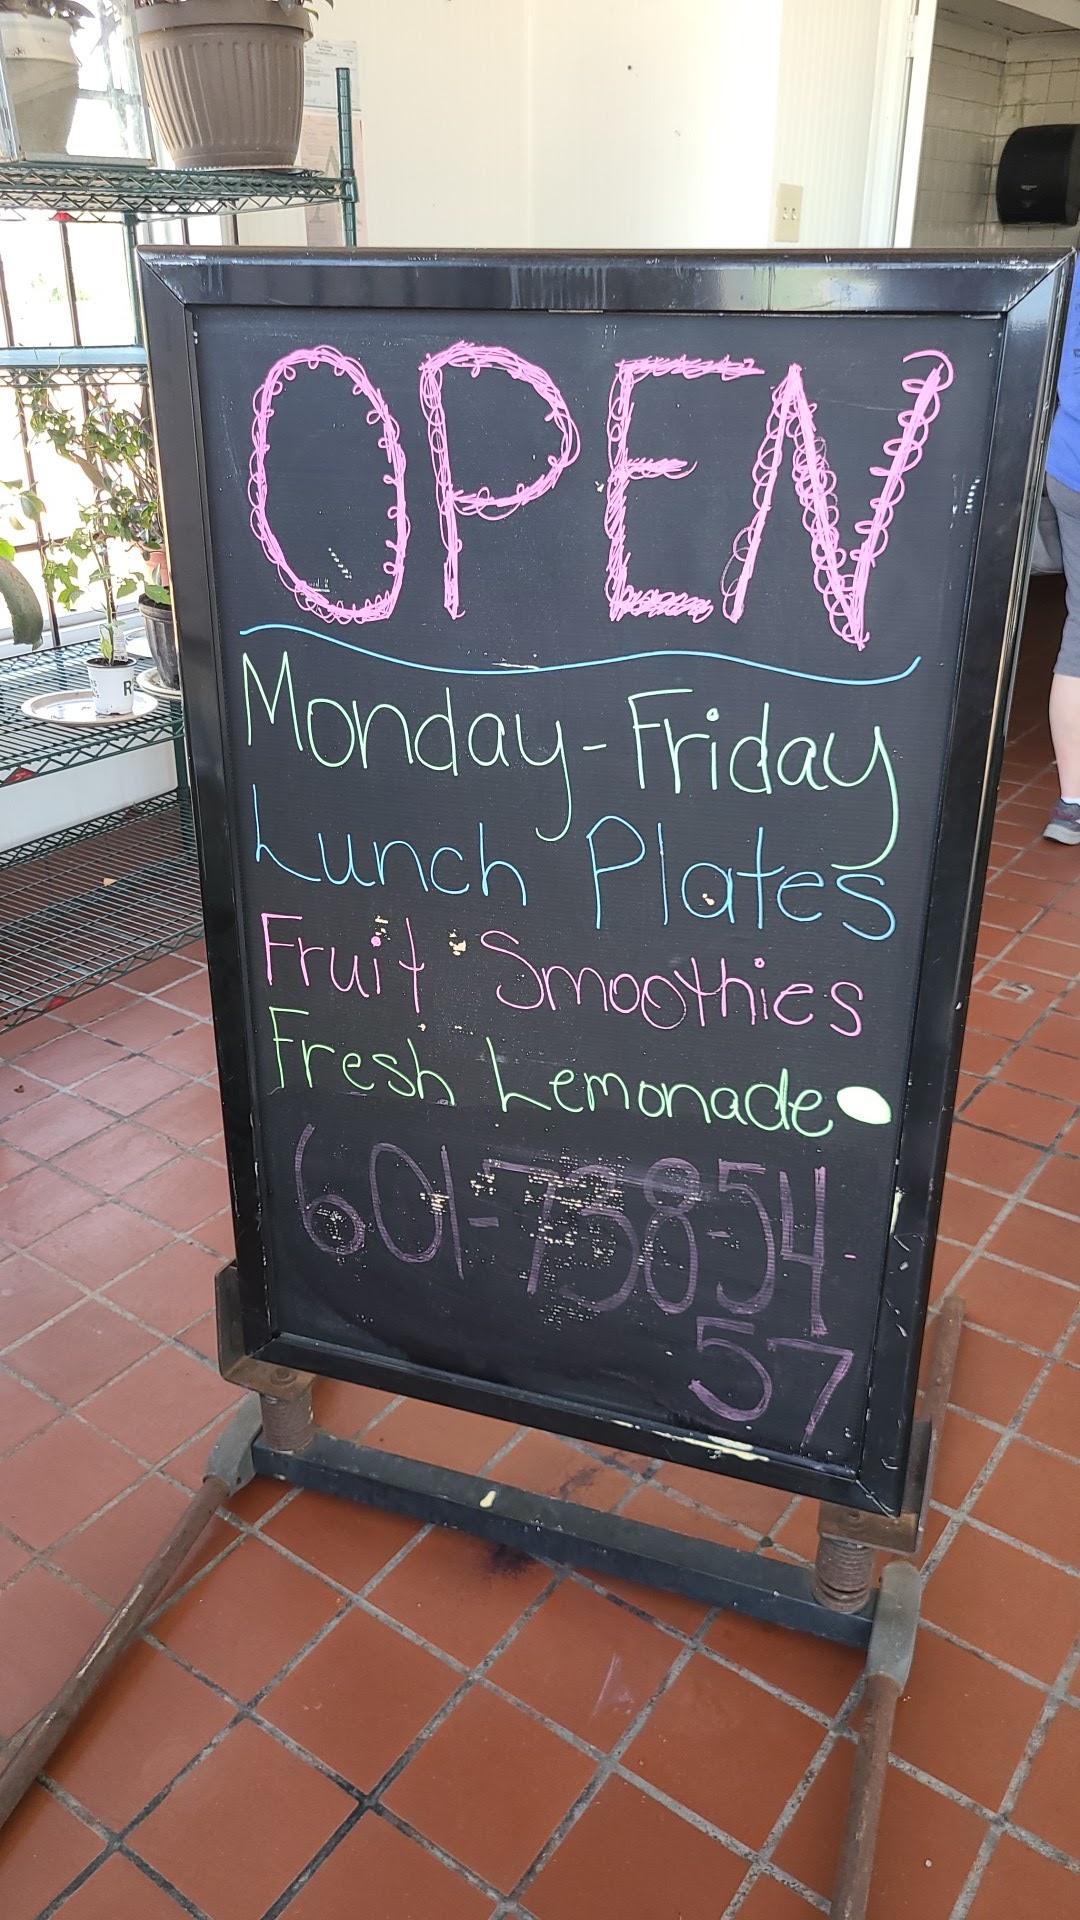 OPEN
Monday-Friday
Lunch Plates
Fruit Smoothies
Fresh Lemonade
601-738-54
57